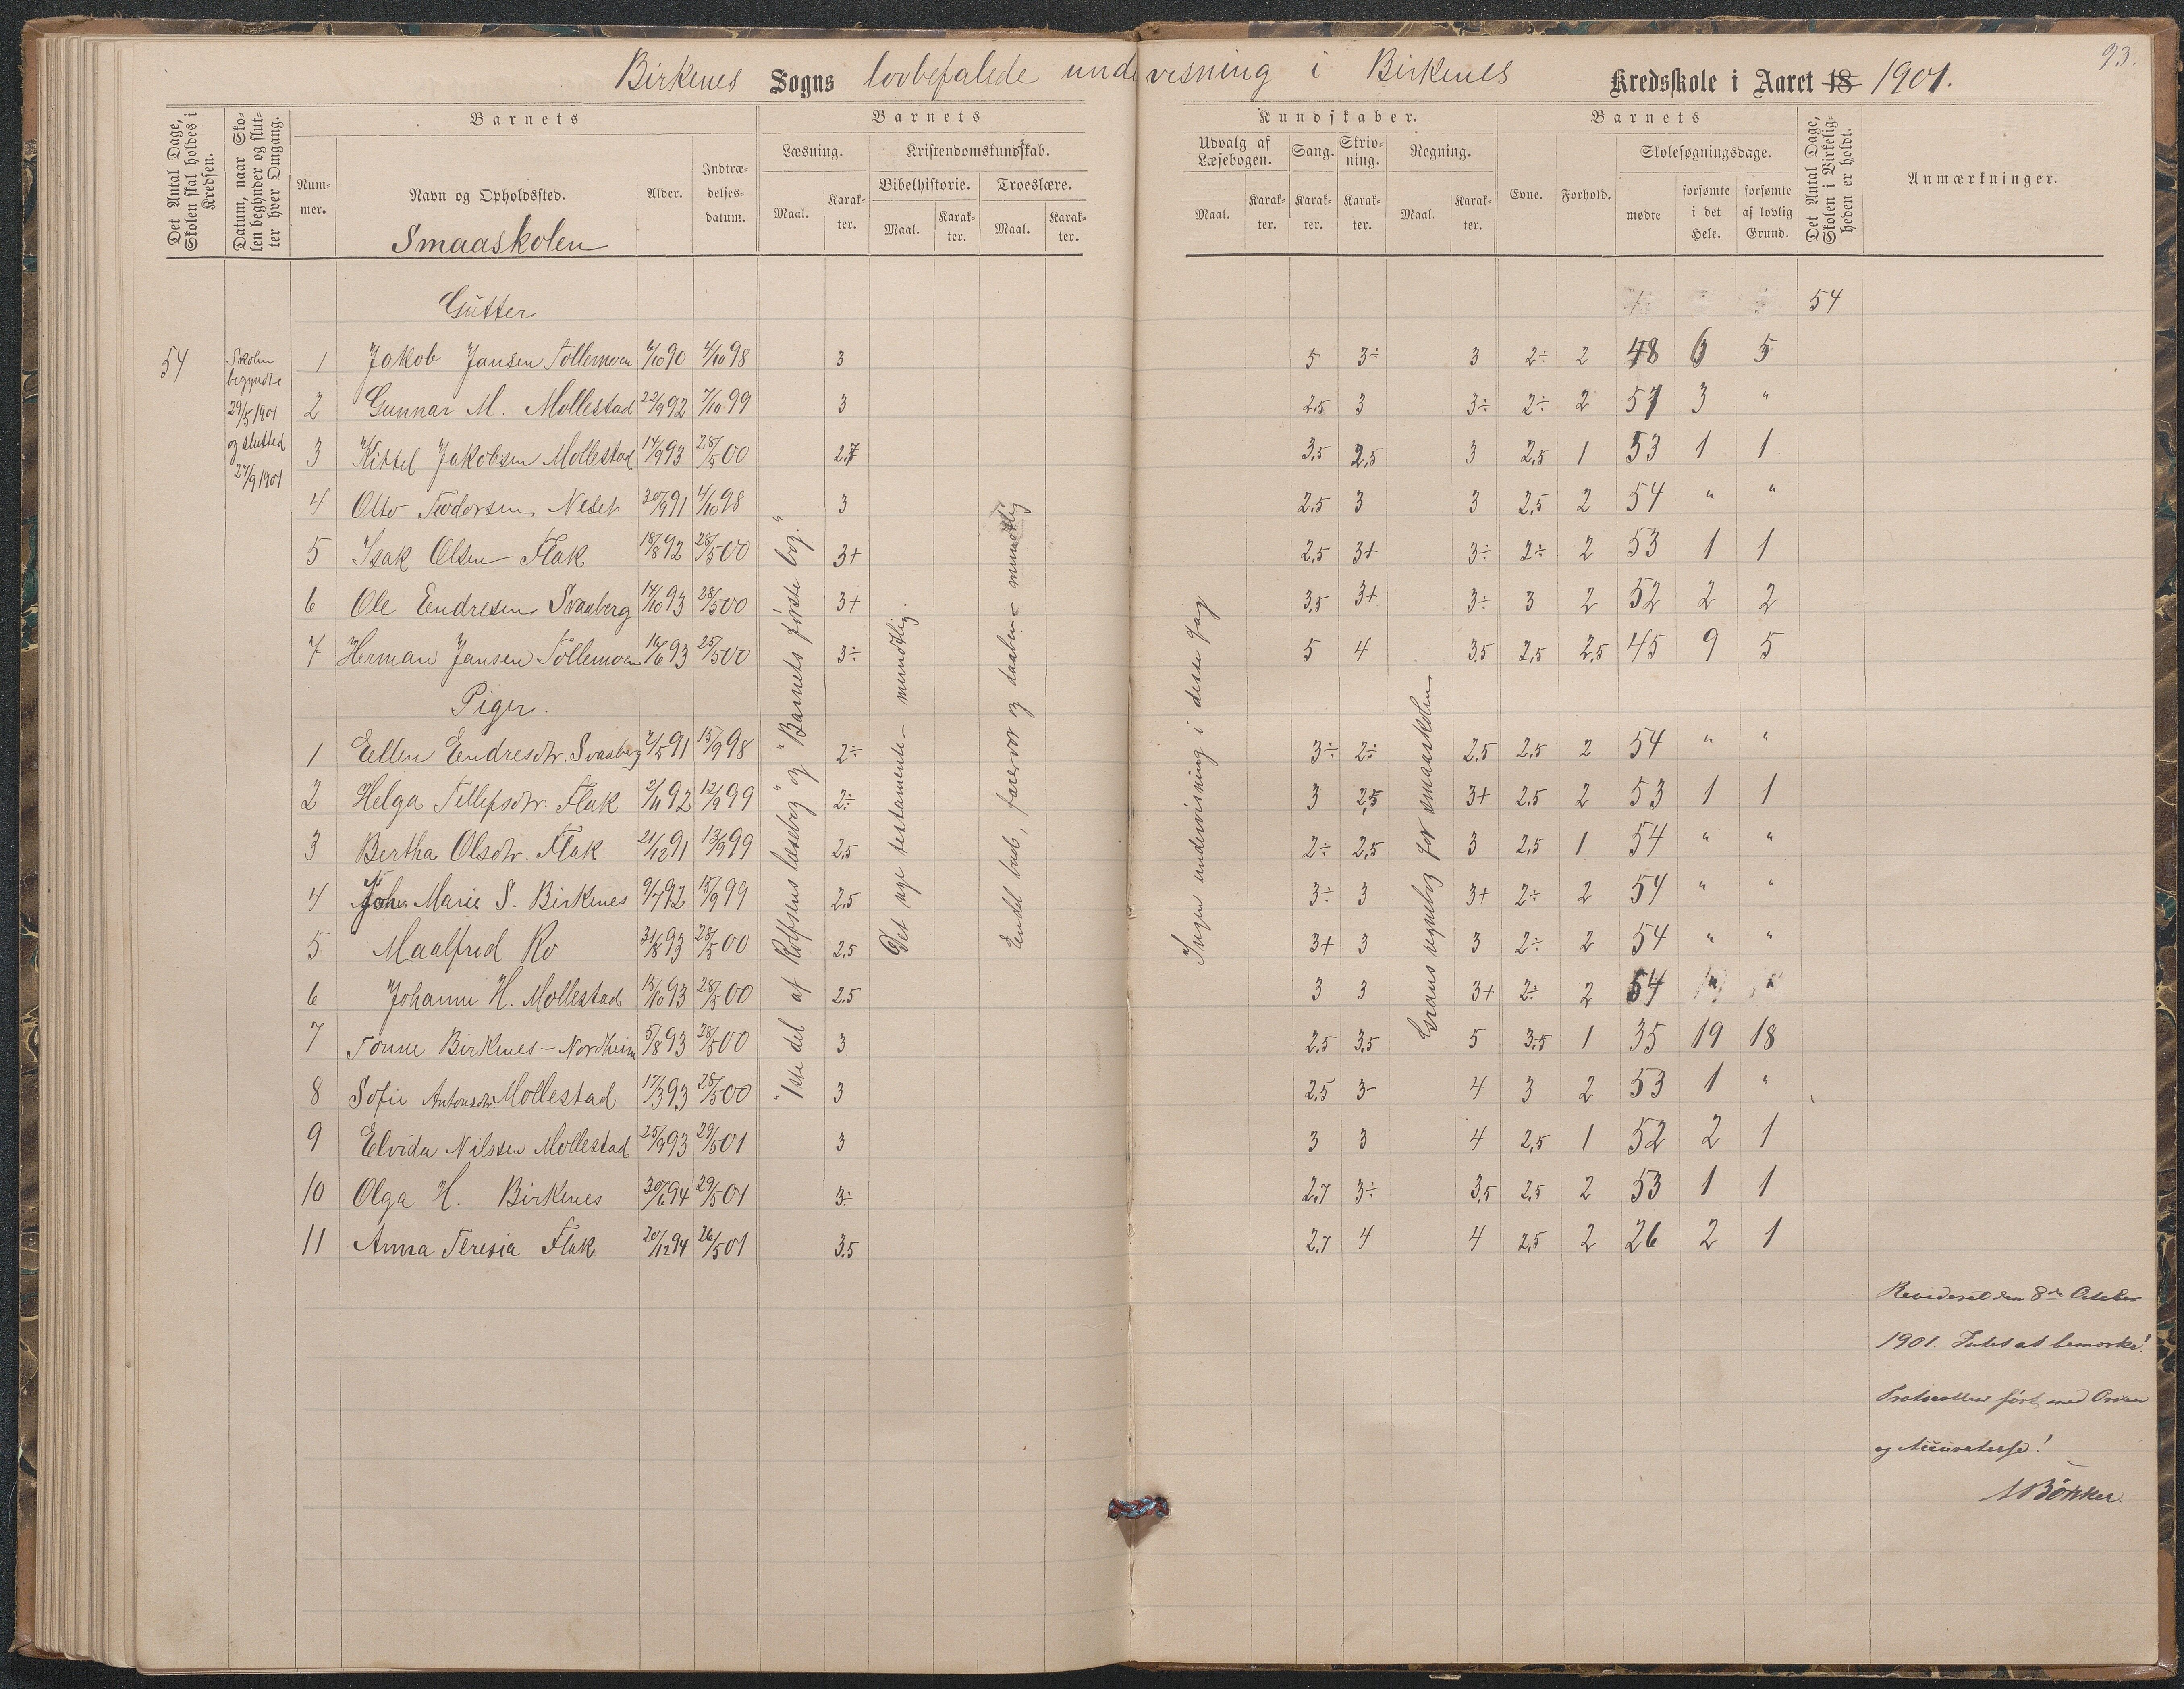 93.
Birkenes Sogns lovbefalede undervisning i Birkenes Kredsskole i Aaret 18 1901.
Det Antal Dage, Skolen skal holdes i Kredsen.
Datum, naar Skolen begynder og slutter hver Omgang.
Nummer.
Barnets
Navn og Opholdssted.
Smaaskolen
Alder.
Indtrædelsesdatum.
Barnets
Læsning.
Maal.
Karakter.
Kristendomskundskab.
Bibelhistorie.
Maal.
Karakter.
Troeslære.
Maal.
Karakter.
Kundskaber.
Udvalg af Læsebogen.
Maal.
Karakter.
Sang.
Karakter.
Skrivning.
Karakter.
Regning.
Maal.
Karakter.
Barnets
Evne.
Forhold.
Skolesøgningsdage.
mødte
forsømte i det Hele.
forsømte af lovlig Grund.
Det Antal Dage, Skolen i Virkeligheden er holdt.
Anmærkninger.
54
Skolen
begyndte
29/5 1901
og slutted
27/9 1901
Gutter
54
1 Jakob Jansen Tollemoen 6/10 90 4/10 98 3 5 3÷ 3 2÷ 2 48 6 5
2 Gunnar M. Mollestad 22/9 92 7/10 99 3 2.5 3 3÷ 2÷ 2 51 3 "
3 Kittel Jakobsen Mollestad 14/9 93 28/5 00 2.7 3.5 2.5 3 2.5 1 53 1 1
4 Otto Teodorsen Neset 30/9 91 4/10 98 3 2.5 3 3 2.5 2 54 " "
5 Isak Olsen Flak 18/8 92 28/5 00 3+ 2.5 3+ 3÷ 2÷ 2 53 1 1
6 Ole Endresen Svaaberg 14/10 93 28/5 00 3+ 3.5 3+ 3÷ 3 2 52 2 2
7 Herman Jansen Tollemoen 16/6 93 25/5 00 3÷ 5 4 3.5 2.5 2.5 45 9 5
Piger.
1 Eellen Endresdtr. Svaaberg 2/5 91 15/9 98 2÷ 3÷ 2÷ 2.5 2.5 2 54 " "
2 Helga Tellefsdtr. Flak 2/11 92 12/9 99 2÷ 3 2.5 3+ 2.5 2 53 1 1
3 Bertha Olsdtr. Flak 21/12 91 13/9 99 2.5 2÷ 2.5 3 2.5 1 54 " "
4 Joh. Marie S. Birkenes 9/7 92 15/9 99 2.5 3÷ 3 3+ 2÷ 2 54 " "
5 Maalfrid Ro 31/8 93 28/5 00 2.5 3+ 3 3 2÷ 2 54 " "
6 Johanne H. Mollestad 15/10 93 28/5 00 2.5 3 3 3+ 2÷ 2 54 " "
7 Tonne Birkenes - Nordheim 5/8 93 28/5 00 3. 2.5 3.5 5 3.5 1 35 19 18
8 Sofie Antonsdtr. Mollestad 17/3 93 28/5 00 3 2.5 3- 4 3 2 53 1 "
9 Elvida Nilssen Mollestad 25/9 93 29/5 01 3 3 3 4 2.5 1 52 2 1
10 Olga H. Birkenes 30/6 94 29/5 01 3÷ 2.7 3÷ 3.5 2.5 2 53 1 1
11 Anna Teresia Flak 20/12 94 26/5 01 3.5 2.7 4 4 2.5 2 26 2 1
"1ste del af Rolfsens læsebog" og "Barnets første bog."
Det nye testamente - mundtlig.
Endel bud, fadervor og daaben - mundtlig
Ingen undervisning i dette fag
Grans regnebog for smaaskolen
Revideret den 8de October
1901. Intet at bemærke!
Protocollen ført med Orden